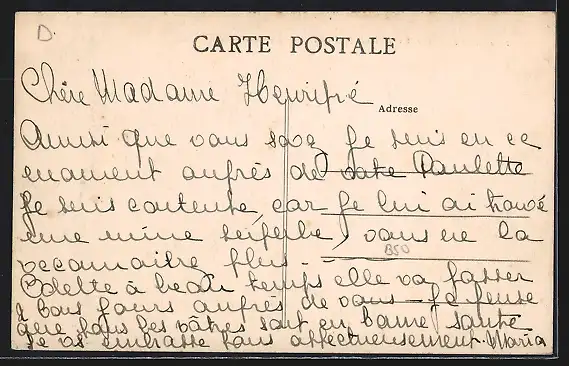 D
CARTE POSTALE
Chère Madame Henrifré
Adresse
Ainsi que vous savez je suis en ce
moment auprès de votre Paulette
Je suis contente, car je lui ai trouvé
une mine superbe, vous ne la
reconnaitrez plus.
B50
Odette à beau temps elle va passer
à bons jours auprès de vous je pense
que tous les vôtres sont en bonne santé
Je vs embrasse tous affectueusement. Maria